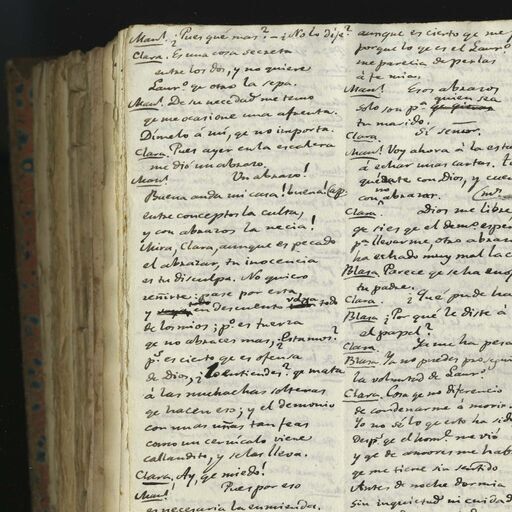 Man.l ¿Pues que mas? — ¿No lo dije?
Clara. Es una cosa secreta
entre los dos, y no quiere
Laur.o qe otro la sepa.
Man.l De su necedad temo
qe me ocasione una afrenta.
Dimelo á mi, qe no importa.
Clara. Pues ayer en la escalera
me dió un abrazo.
Man.l Un abrazo!
Buena anda mi casa! buena! (ap.
entre conceptos la culta,
y con abrazos la necia!
Mira, Clara, aunque es pecado
el abrazar, tu inocencia
es tu disculpa. No quiero
reñirte: pase por esta,
y en descuento vaya todo
de los mios; p.o es fuerza
qe no abraces mas; Estamos?
p.s es cierto qe es ofensa
de Dios, ¿lo entiendes? qe mata
á las muchachas solteras
qe hacen eso; y el demonio
con unas uñas tan feas
como un cernicalo viene
callandito, y se las lleva.
Clara, Ay, qe miedo!
Man.l Pues por eso
es necesaria la enmienda.
aunque es cierto qe me p
porque lo qe es el Laur.o
me parecia de perlas
á fe mia.
Man.l Esos abrazos
solo son p.a quien sea
tu marido!
Clara. Sí señor.
Man.l Voy ahora á la esta
á echar unas cartas.
quédate con Dios, y cuen
con no abrazar.
Clara. Dios me libre,
qe si es qe el dem.o espera
p.a llevarme, otro abrazo
ha echado muy mal la c
Blasa Parece qe se ha enoj
tu padre.
Clara. ¿Qué puede ha
Blasa ¿Por qué le diste á
el papel?
Clara. Ya me ha pesa
Blasa Ya no puedes proseguir
la voluntad de Laur.o
Clara. Cosa qe no diferencio
de condenarme á morir.
Yo no sé lo qe esto ha sid
desp.s qe el hom.e me vió
y qe de amores me habl
qe me tiene sin sentido.
Antes de noche dormia
sin inquietud ni cuidad